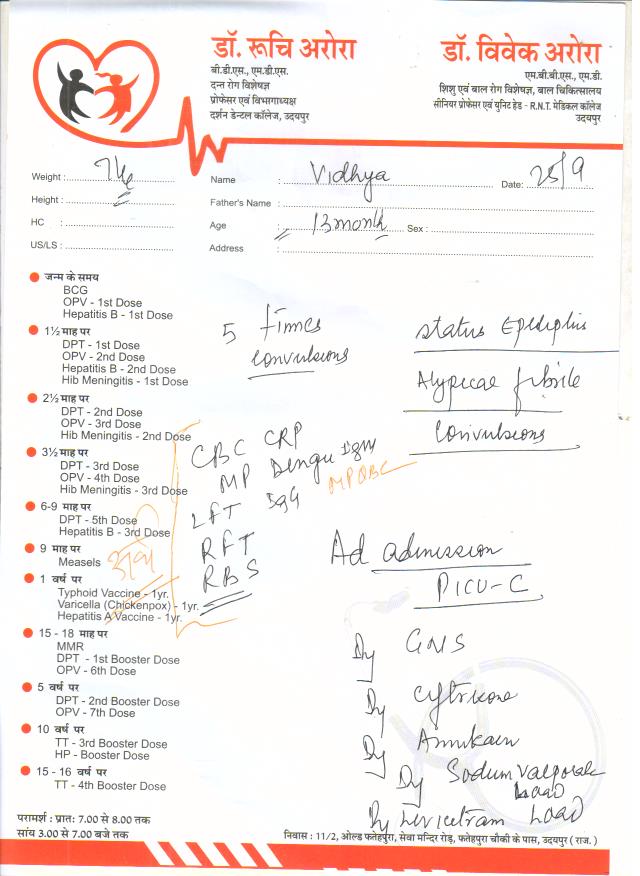 डॉ. रूचि अरोरा
बी.डी.एस., एम.डी.एस.
दन्त रोग विशेषज्ञ
प्रोफेसर एवं विभागाध्यक्ष
दर्शन डेन्टल कॉलेज, उदयपुर
डॉ. विवेक अरोरा
एम.बी.बी.एस., एम.डी.
शिशु एवं बाल रोग विशेषज्ञ, बाल चिकित्सालय
सीनियर प्रोफेसर एवं यूनिट हेड - R.N.T. मेडिकल कॉलेज
उदयपुर
Weight :
Height :
HC :
US/LS :
Name : Vidhya Date: 25/9
Father's Name :
Age : 13 month Sex :
Address :
जन्म के समय
BCG
OPV - 1st Dose
Hepatitis B - 1st Dose
1½ माह पर
DPT - 1st Dose
OPV - 2nd Dose
Hepatitis B - 2nd Dose
Hib Meningitis - 1st Dose
2½ माह पर
DPT - 2nd Dose
OPV - 3rd Dose
Hib Meningitis - 2nd Dose
3½ माह पर
DPT - 3rd Dose
OPV - 4th Dose
Hib Meningitis - 3rd Dose
6-9 माह पर
DPT - 5th Dose
Hepatitis B - 3rd Dose
9 माह पर
Measels
1 वर्ष पर
Typhoid Vaccine - 1yr.
Varicella (Chickenpox) - 1yr.
Hepatitis A Vaccine - 1yr.
15 - 18 माह पर
MMR
DPT - 1st Booster Dose
OPV - 6th Dose
5 वर्ष पर
DPT - 2nd Booster Dose
OPV - 7th Dose
10 वर्ष पर
TT - 3rd Booster Dose
HP - Booster Dose
15 - 16 वर्ष पर
TT - 4th Booster Dose
5 times
convulsions
CBC CRP
MP Dengu IgM
LFT IgG
MPQBC
RFT
RBS
status Epilepticus
Atypical febrile
convulsions
Ad admission
PICU-C
GNS
Amikacin
Sodium Valporate
Load
Levicetram Load
परामर्श : प्रात: 7.00 से 8.00 तक
सांय 3.00 से 7.00 बजे तक
निवास : 11/2, ओल्ड फतेहपुरा, सेवा मन्दिर रोड़, फतेहपुरा चौकी के पास, उदयपुर ( राज. )